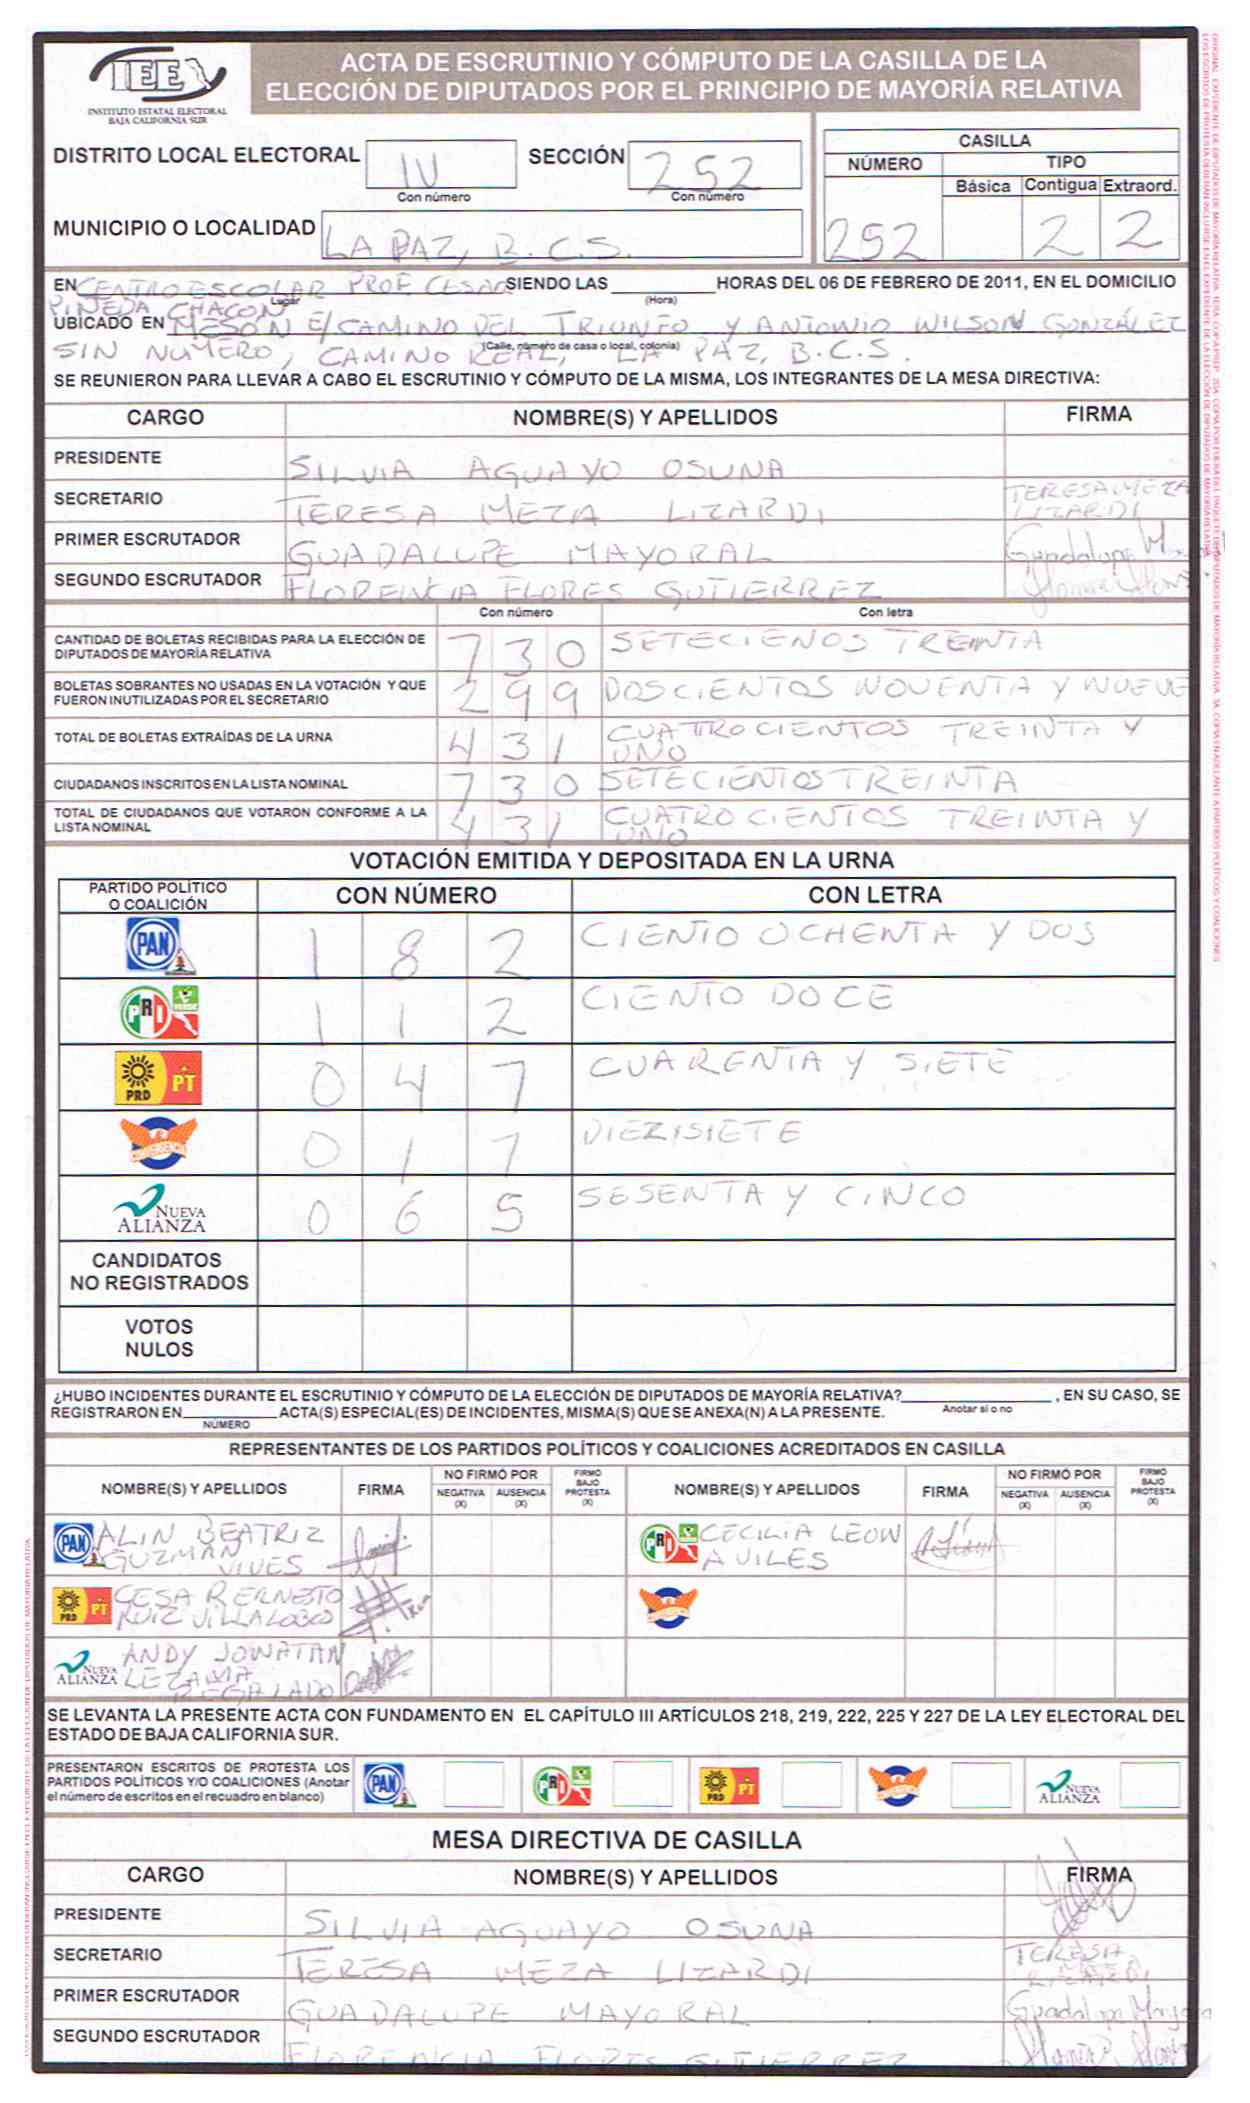 IEEX
INSTITUTO ESTATAL ELECTORAL
BAJA CALIFORNIA SUR
ACTA DE ESCRUTINIO Y CÓMPUTO DE LA CASILLA DE LA
ELECCIÓN DE DIPUTADOS POR EL PRINCIPIO DE MAYORÍA RELATIVA
DISTRITO LOCAL ELECTORAL IV SECCIÓN 252
Con número Con número
CASILLA
NÚMERO TIPO
Básica Contigua Extraord.
252 2 2
MUNICIPIO O LOCALIDAD LA PAZ, B.C.S.
EN CENTRO ESCOLAR PROF. CESAR SIENDO LAS HORAS DEL 06 DE FEBRERO DE 2011, EN EL DOMICILIO
PINEDA CHACON Lugar (Hora)
UBICADO EN MESON E/ CAMINO DEL TRIUNFO Y ANTONIO WILSON GONZÁLEZ
SIN NUMERO, CAMINO REAL, LA PAZ, B.C.S.
(Calle, número de casa o local, colonia)
SE REUNIERON PARA LLEVAR A CABO EL ESCRUTINIO Y CÓMPUTO DE LA MISMA, LOS INTEGRANTES DE LA MESA DIRECTIVA:
CARGO NOMBRE(S) Y APELLIDOS FIRMA
PRESIDENTE SILVIA AGUAYO OSUNA
SECRETARIO TERESA MEZA LIZARDI TERESA MEZA
LIZARDI
PRIMER ESCRUTADOR GUADALUPE MAYORAL Guadalupe
SEGUNDO ESCRUTADOR FLORENCIA FLORES GUTIERREZ
Con número Con letra
CANTIDAD DE BOLETAS RECIBIDAS PARA LA ELECCIÓN DE
DIPUTADOS DE MAYORÍA RELATIVA 730 SETECIENOS TREINTA
BOLETAS SOBRANTES NO USADAS EN LA VOTACIÓN Y QUE
FUERON INUTILIZADAS POR EL SECRETARIO 299 DOSCIENTOS NOVENTA Y NUEVE
TOTAL DE BOLETAS EXTRAÍDAS DE LA URNA 431 CUATROCIENTOS TREINTA Y
UNO
CIUDADANOS INSCRITOS EN LA LISTA NOMINAL 730 SETECIENTOS TREINTA
TOTAL DE CIUDADANOS QUE VOTARON CONFORME A LA
LISTA NOMINAL 431 CUATROCIENTOS TREINTA Y
UNO
VOTACIÓN EMITIDA Y DEPOSITADA EN LA URNA
PARTIDO POLÍTICO
O COALICIÓN CON NÚMERO CON LETRA
PAN 182 CIENTO OCHENTA Y DOS
PRI VERDE 112 CIENTO DOCE
PRD PT 047 CUARENTA Y SIETE
CONVERGENCIA 017 DIEZISIETE
NUEVA ALIANZA 065 SESENTA Y CINCO
CANDIDATOS
NO REGISTRADOS
VOTOS
NULOS
¿HUBO INCIDENTES DURANTE EL ESCRUTINIO Y CÓMPUTO DE LA ELECCIÓN DE DIPUTADOS DE MAYORÍA RELATIVA? , EN SU CASO, SE
Anotar sí o no
REGISTRARON EN ACTA(S) ESPECIAL(ES) DE INCIDENTES, MISMA(S) QUE SE ANEXA(N) A LA PRESENTE.
NÚMERO
REPRESENTANTES DE LOS PARTIDOS POLÍTICOS Y COALICIONES ACREDITADOS EN CASILLA
NOMBRE(S) Y APELLIDOS FIRMA NO FIRMÓ POR FIRMÓ BAJO PROTESTA (X) NOMBRE(S) Y APELLIDOS FIRMA NO FIRMÓ POR FIRMÓ BAJO PROTESTA (X)
NEGATIVA (X) AUSENCIA (X) NEGATIVA (X) AUSENCIA (X)
PAN ALIN BEATRIZ PRI VERDE CECILIA LEON
GUZMAN VIVES AVILES
PRD PT CESAR ERNESTO
RUIZ VILLALOBO
NUEVA ALIANZA ANDY JONATAN
LEZAMA
REGALADO
SE LEVANTA LA PRESENTE ACTA CON FUNDAMENTO EN EL CAPÍTULO III ARTÍCULOS 218, 219, 222, 225 Y 227 DE LA LEY ELECTORAL DEL
ESTADO DE BAJA CALIFORNIA SUR.
PRESENTARON ESCRITOS DE PROTESTA LOS
PARTIDOS POLÍTICOS Y/O COALICIONES (Anotar
el número de escritos en el recuadro en blanco)
PAN PRI VERDE PRD PT NUEVA ALIANZA
MESA DIRECTIVA DE CASILLA
CARGO NOMBRE(S) Y APELLIDOS FIRMA
PRESIDENTE SILVIA AGUAYO OSUNA
SECRETARIO TERESA MEZA LIZARDI TERESA
MEZA
LIZARDI
PRIMER ESCRUTADOR GUADALUPE MAYORAL Guadalupe Mayoral
SEGUNDO ESCRUTADOR FLORENCIA FLORES GUTIERREZ